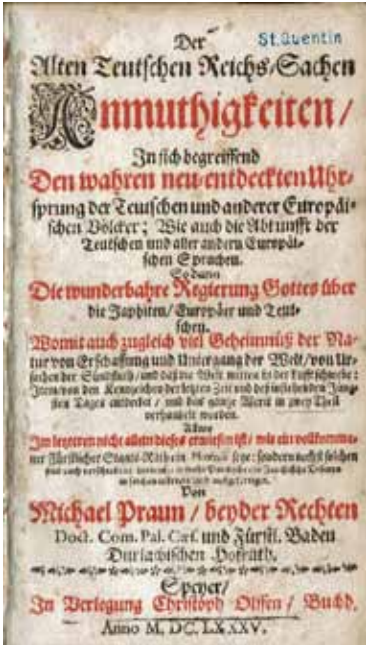 Der
St. Quentin
Alten Teutschen Reichs-Sachen
Anmuthigkeiten /
In sich begreiffend
Den wahren neu-entdeckten Uhr-
sprung der Teutschen und anderer Europäi-
schen Völcker; Wie auch die Abkunfft der
Teutschen und aller andern Europäi-
schen Sprachen.
So dann
Die wunderbahre Regierung Gottes über
die Japhiten / Europäer und Teut-
schen.
Womit auch zugleich viel Geheimnüß der Na-
tur von Erschaffung und Untergang der Welt / von Ur-
sachen der Sündfluth / und daß die Welt mitten in der Lufft schwebe;
Item / von den Kennzeichen der letzten Zeit und bevorstehenden Jüng-
sten Tages entdecket / und das gantze Werck in zwey Theil
verhandelt worden.
Allwo
Im letzteren nicht allein dieses erwiesen ist / wie ein vollkomme-
ner Fürstlicher Staats-Rath seye: sondern nechst solchen
Von
Michael Praun / beyder Rechten
Doct. Com. Pal. Cæs. und Fürstl. Baden
Durlachischen Hofrath.
Speyer /
In Verlegung Christoph Olffen / Buchh.
Anno M. DC. LXXXV.